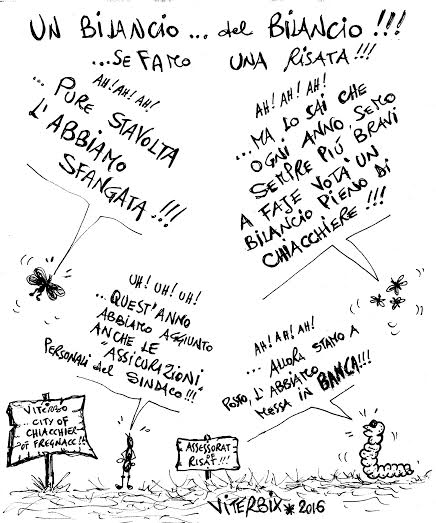 UN BILANCIO... del BILANCIO!!!
...SE FAMO UNA RISATA!!!
AH! AH! AH!
... PURE STAVOLTA
L'ABBIAMO
SFANGATA!!!
AH! AH! AH!
...MA LO SAI CHE
OGNI ANNO SEMO
SEMPRE PIÙ BRAVI
A FAJE VOTA' UN
BILANCIO PIENO DI
CHIACCHIERE!!!
UH! UH! UH!
...QUEST'ANNO
ABBIAMO AGGIUNTO
ANCHE LE
"ASSICURAZIONI"
PERSONALI del SINDACO!!!
AH! AH! AH!
... ALLORA STAMO A
POSTO, L'ABBIAMO
MESSA IN BANCA!!!
VITERBO
...CITY OF
CHIACCHIER
OF FREGNACC!!
ASSESSORAT
OF
RISAT!!!
VITERBIX * 2016